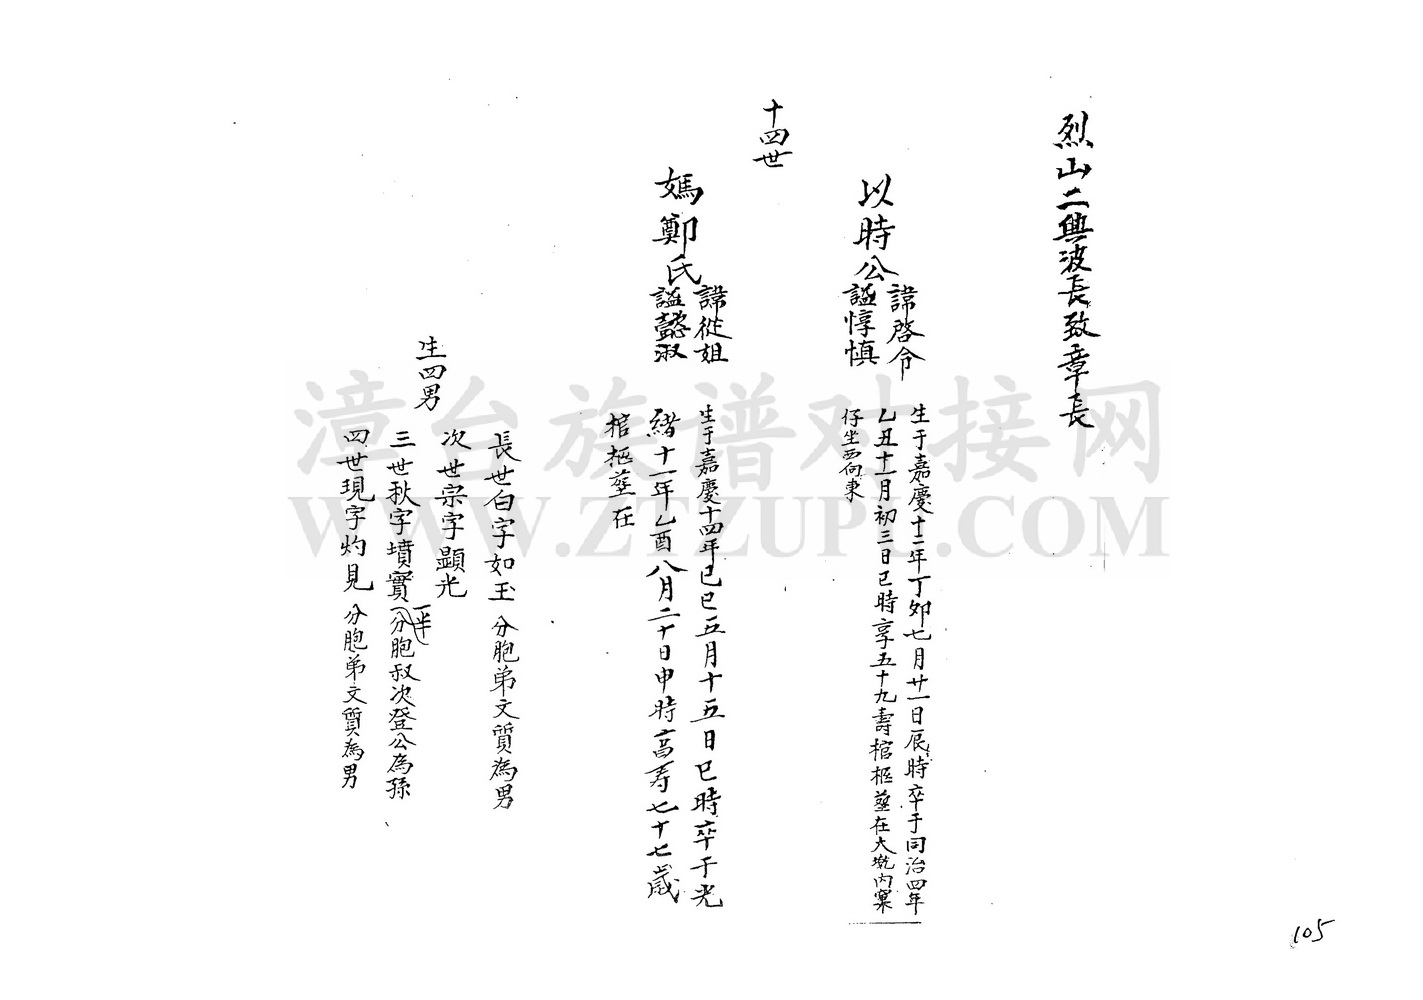 烈山二興波長致章長
十四世
以時公
諱啓令
謚惇慎
生于嘉慶十二年丁卯七月廿一日辰時卒于同治四年
乙丑十一月初三日巳時享五十九壽棺柩塟在大坑内窠
仔坐西向東
媽鄭氏
諱從姐
謚懿淑
生于嘉慶十四年己巳五月十五日巳時卒于光
緒十一年乙酉八月二十日申時高寿七十七歲
棺柩塟在
生四男
長世白字如玉 分胞弟文質為男
次世宗字顯光
三世秋字墳實 一半分胞叔次登公為孫
四世現字灼見 分胞弟文質為男
漳台族谱对接网
WWW.ZTZUPU.COM
105